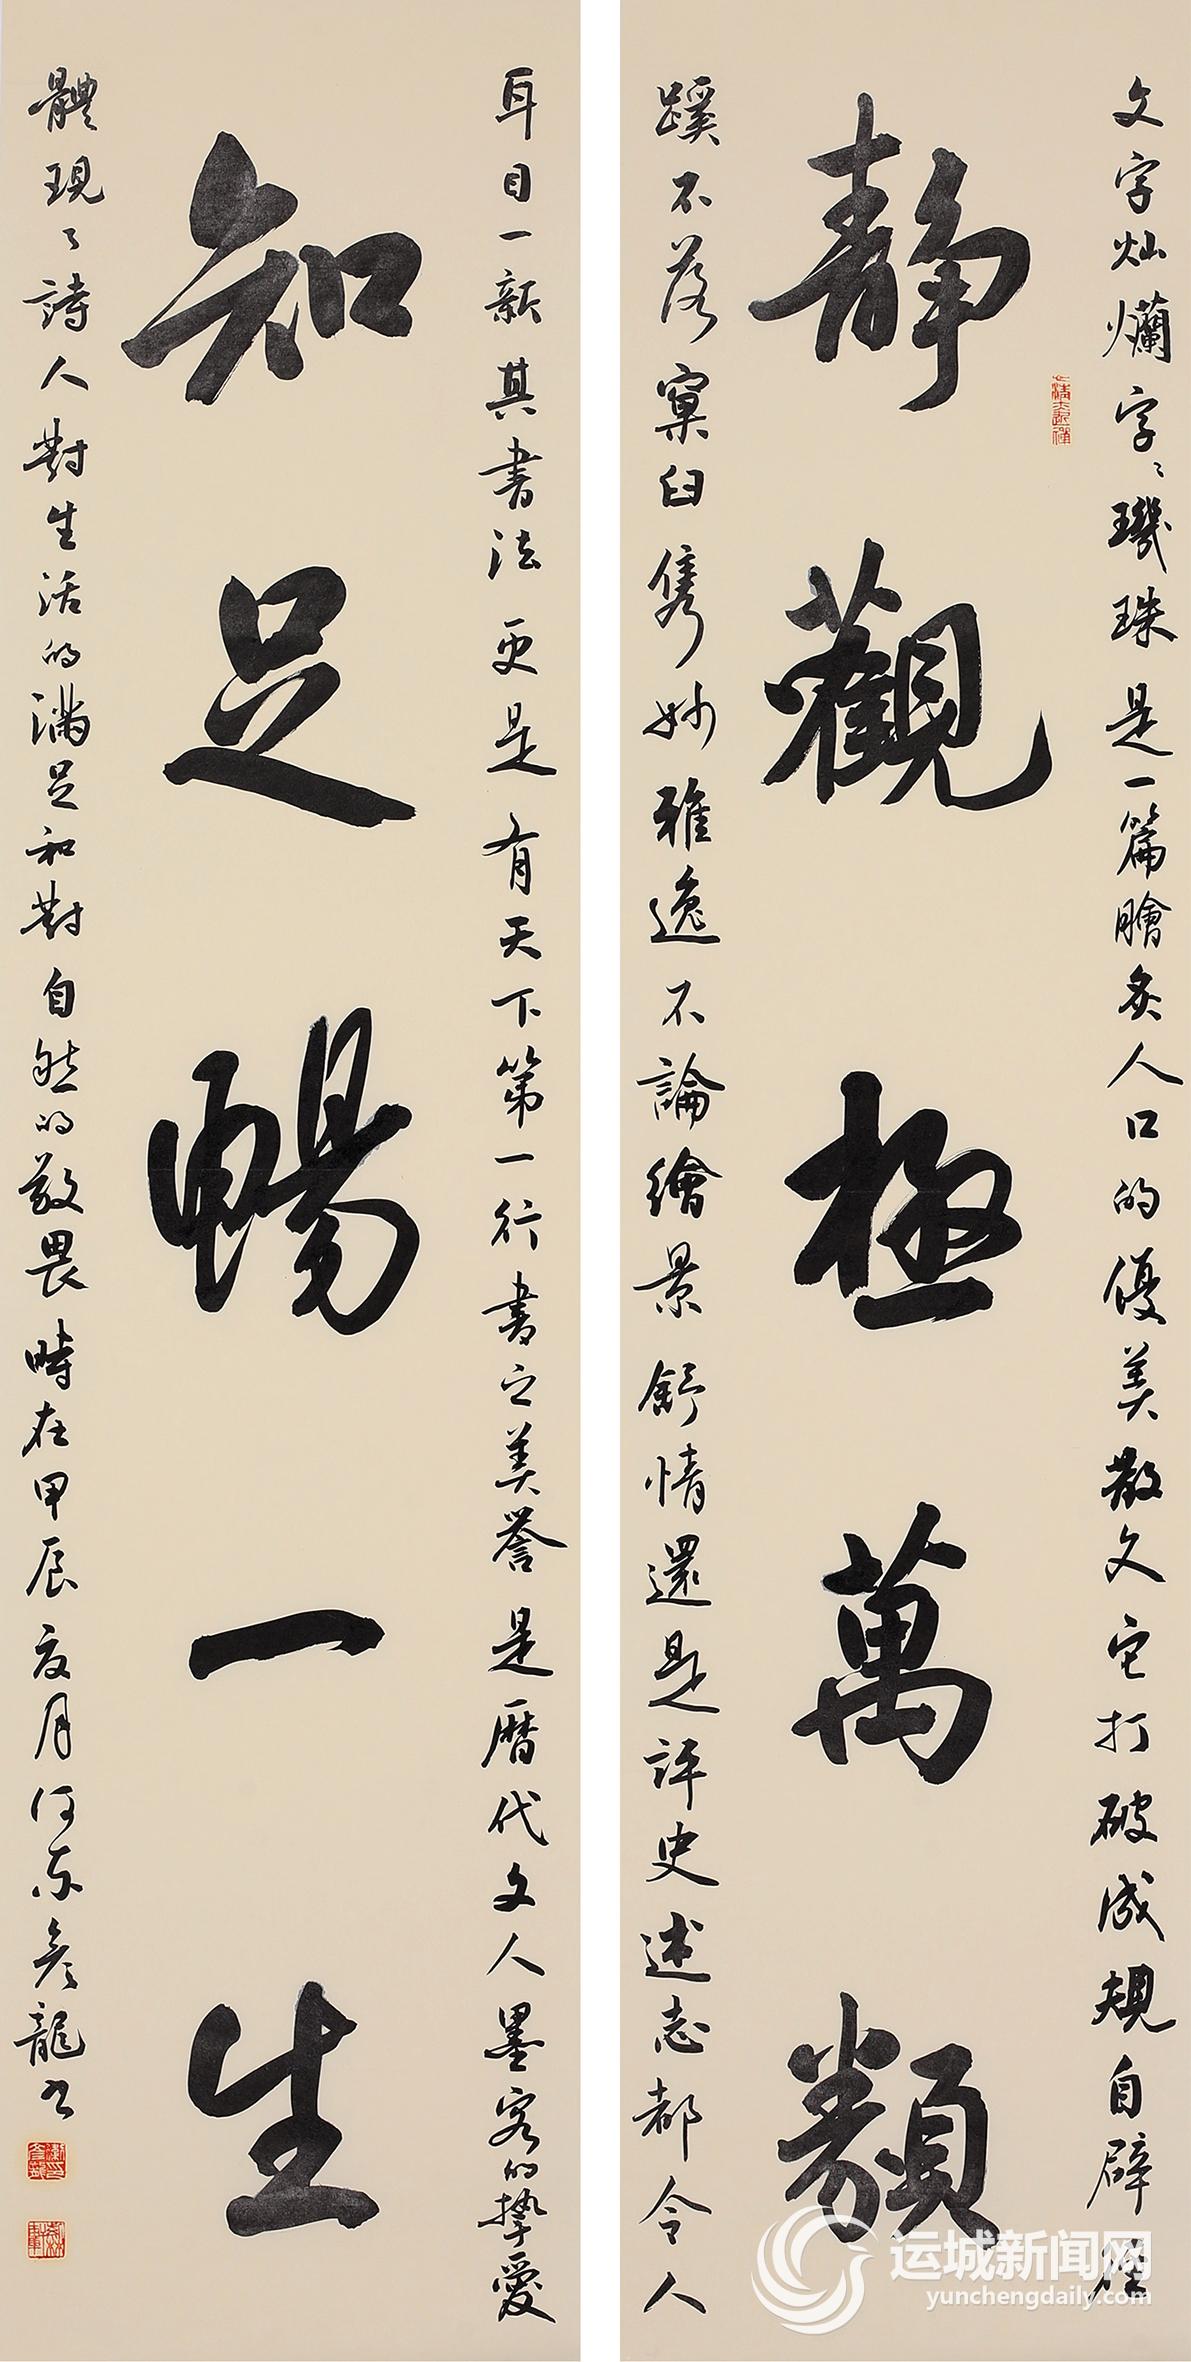 文字灿爛字〻璣珠是一篇膾炙人口的優美散文它打破成規自辟徑
靜觀極萬類
蹊不落窠臼雋妙雅逸不論繪景舒情還是評史述志都令人
耳目一新其書法更是有天下第一行書之美譽是曆代文人墨客的摯愛
知足暢一生
體現了詩人對生活的滿足和對自然的敬畏時在甲辰夏月河东彦龍书
运城新闻网
yunchengdaily.com